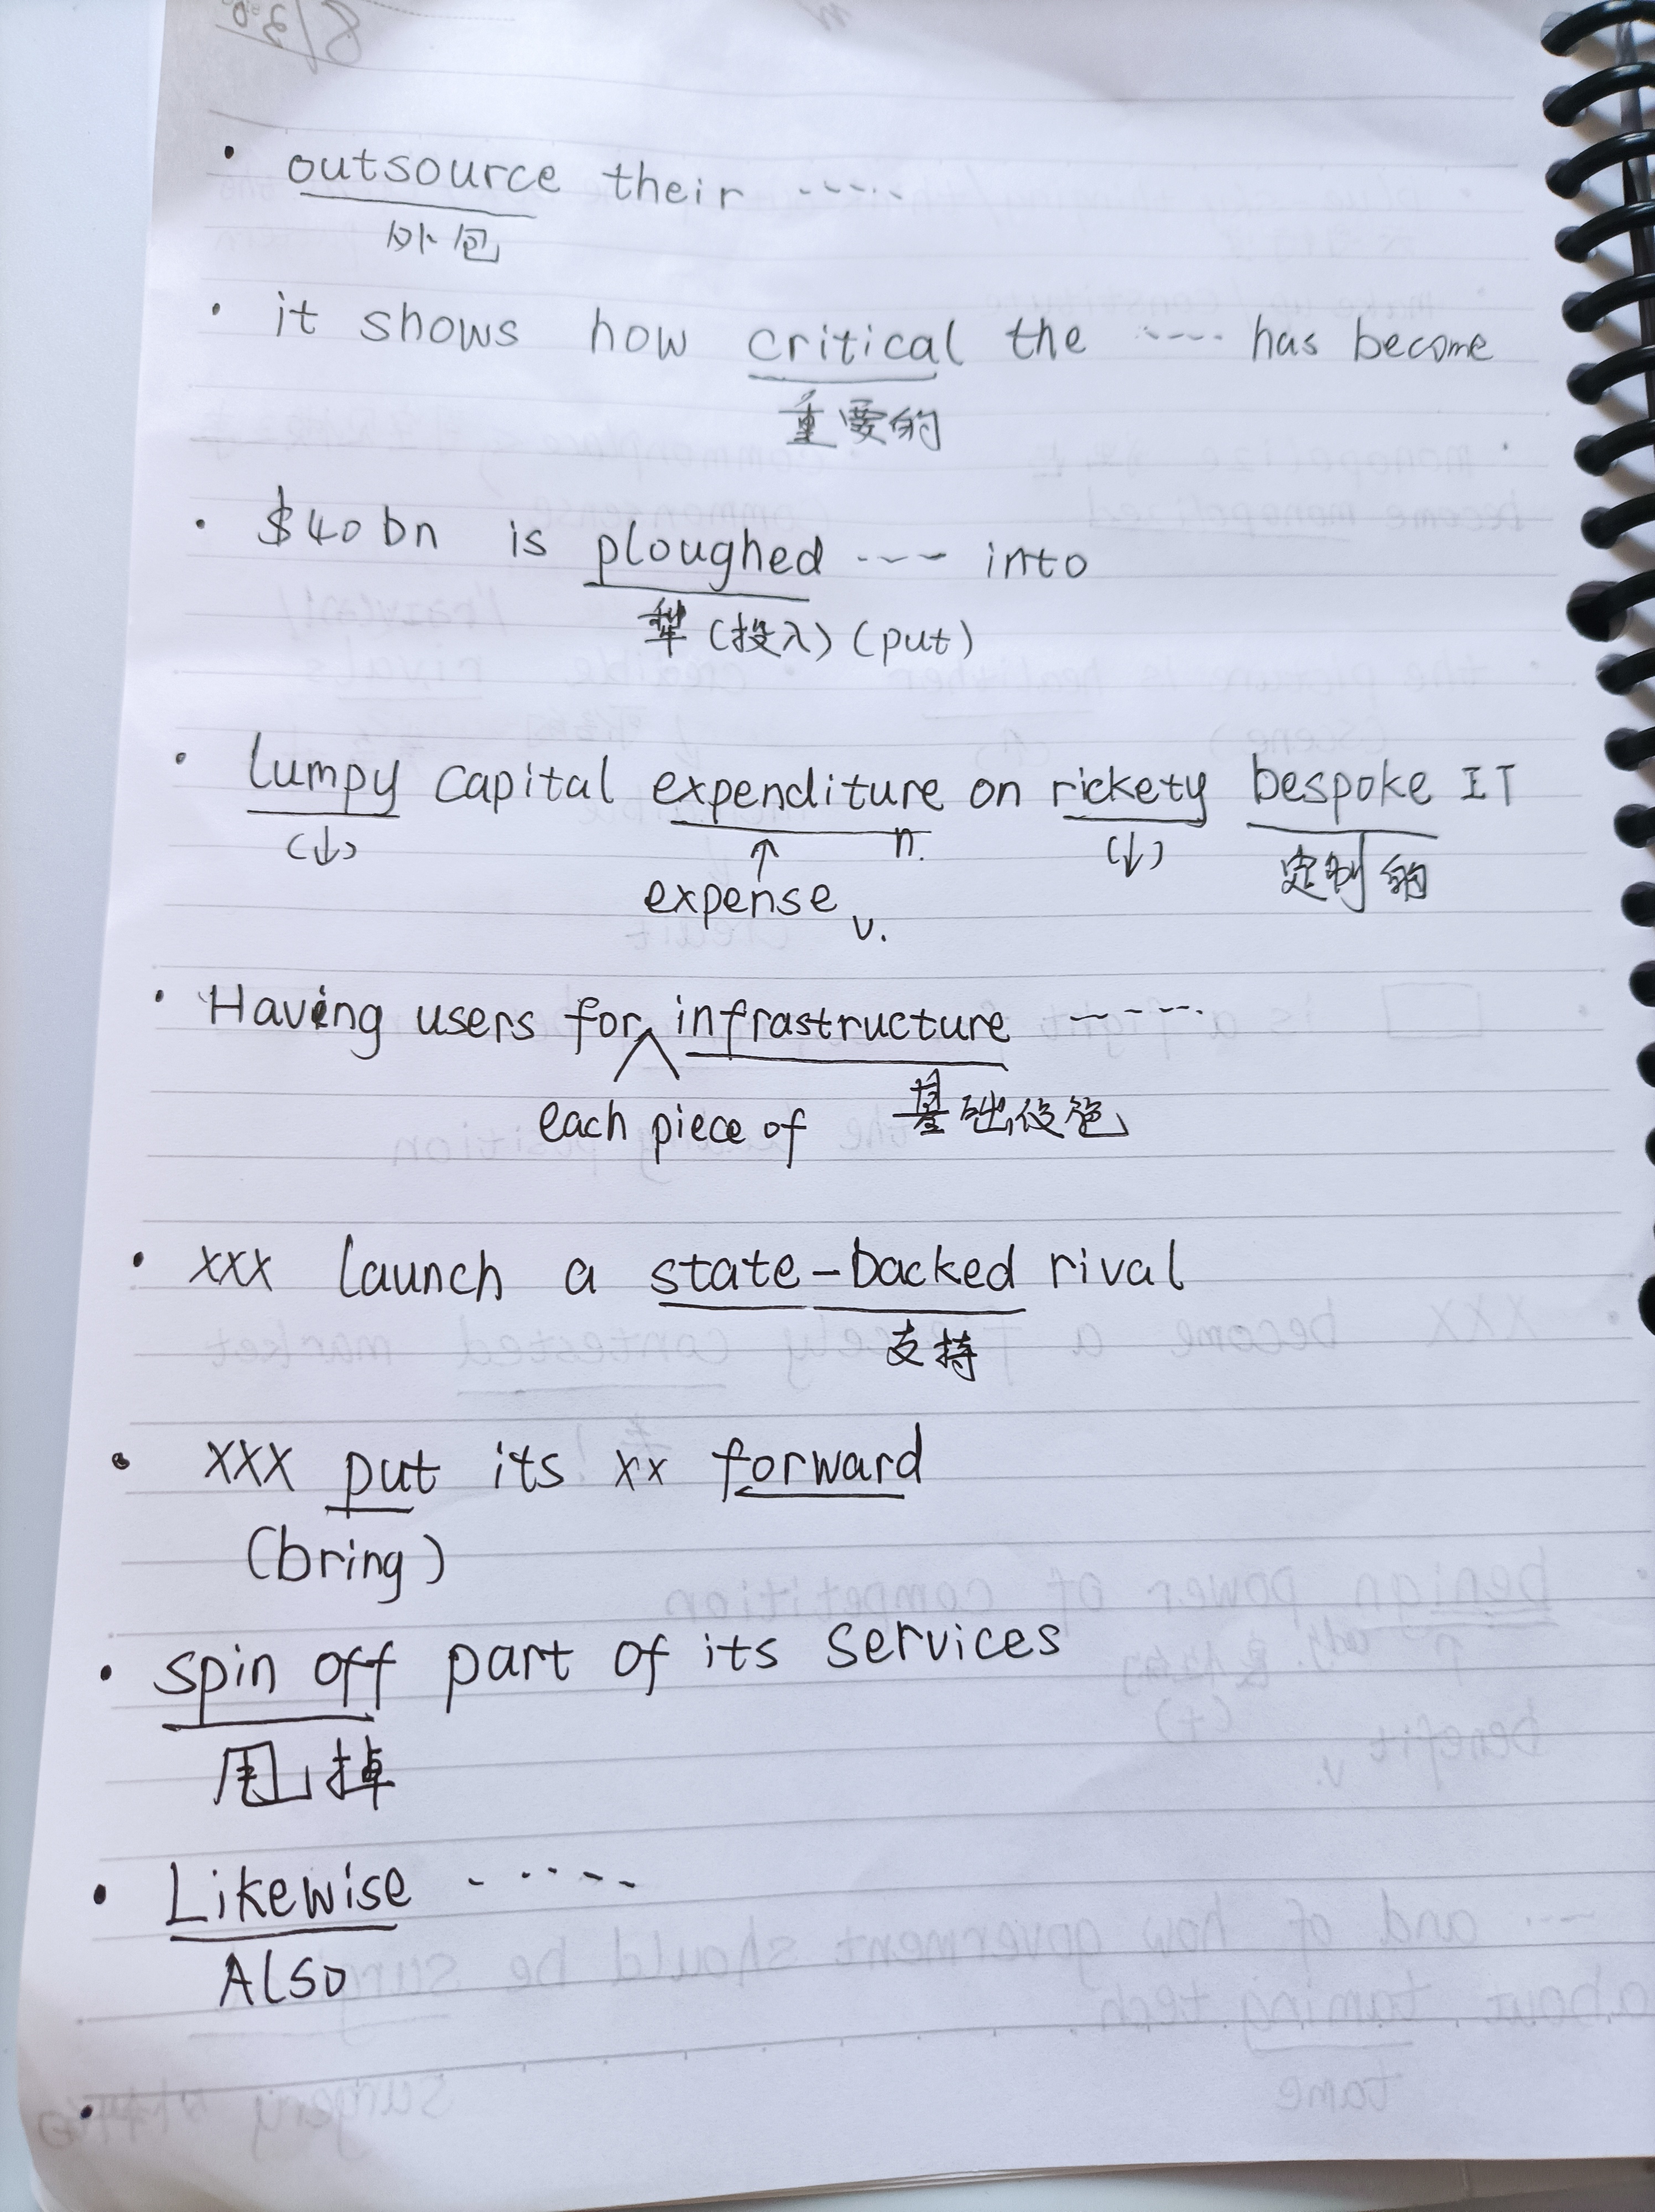 • outsource their ······
外包
• it shows how critical the ···· has become
重要的
• $40 bn is ploughed ···· into
犁(投入)(put)
• lumpy capital expenditure on rickety bespoke IT
(↓) ↑ n. (↓) 定制的
expense v.
• Having users for infrastructure ······
each piece of 基础设施
• xxx launch a state-backed rival
支持
• xxx put its xx forward
(bring)
• spin off part of its services
甩掉
• Likewise ······
Also
•